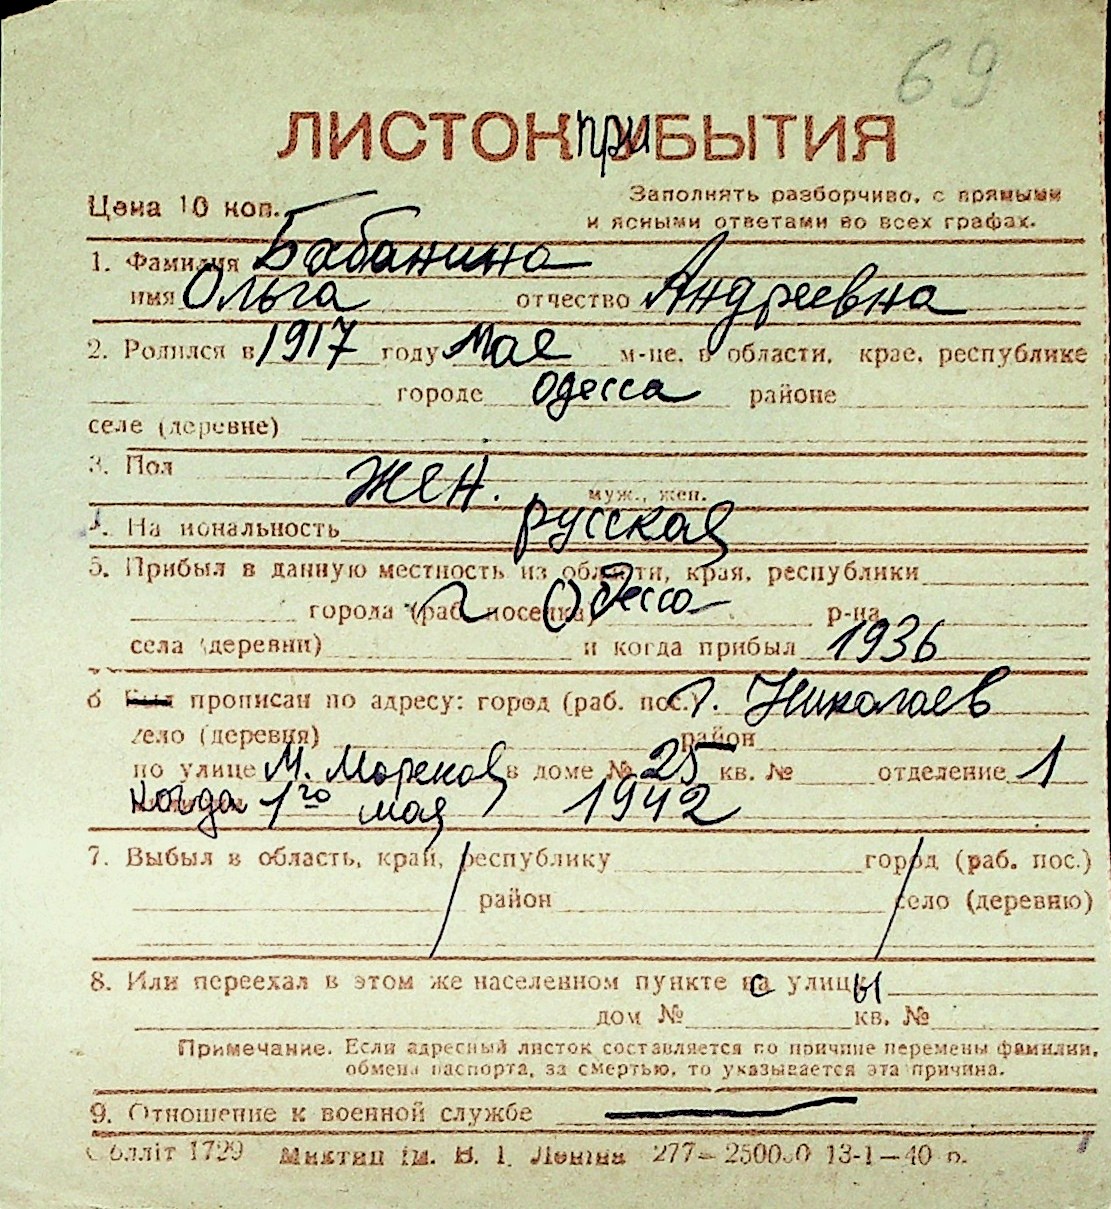 69
ЛИСТОК при БЫТИЯ
Цена 10 коп.
Заполнять разборчиво, с прямыми
и ясными ответами во всех графах.
1. Фамилия Бабанина
имя Ольга отчество Андреевна
2. Родился в 1917 году мае м-це, в области, крае, республике
городе Одесса районе
селе (деревне)
3. Пол жен.
муж., жен.
4. На иональность русская
5. Прибыл в данную местность из области, края, республики
города (раб. поселка) г Одесса р-на
села (деревни) и когда прибыл 1936
6 Был прописан по адресу: город (раб. пос.) г. Николаев
село (деревня) район
по улице М. Морская в доме № 25 кв. № отделение 1
когда 1го мая 1942
7. Выбыл в область, край, республику город (раб. пос.)
район село (деревню)
8. Или переехал в этом же населенном пункте с улицы
дом № кв. №
Примечание. Если адресный листок составляется по причине перемены фамилии,
обмена паспорта, за смертью, то указывается эта причина.
9. Отношение к военной службе
облліт 1729 ім. В. І. Леніна 277— 13-1—40 р.